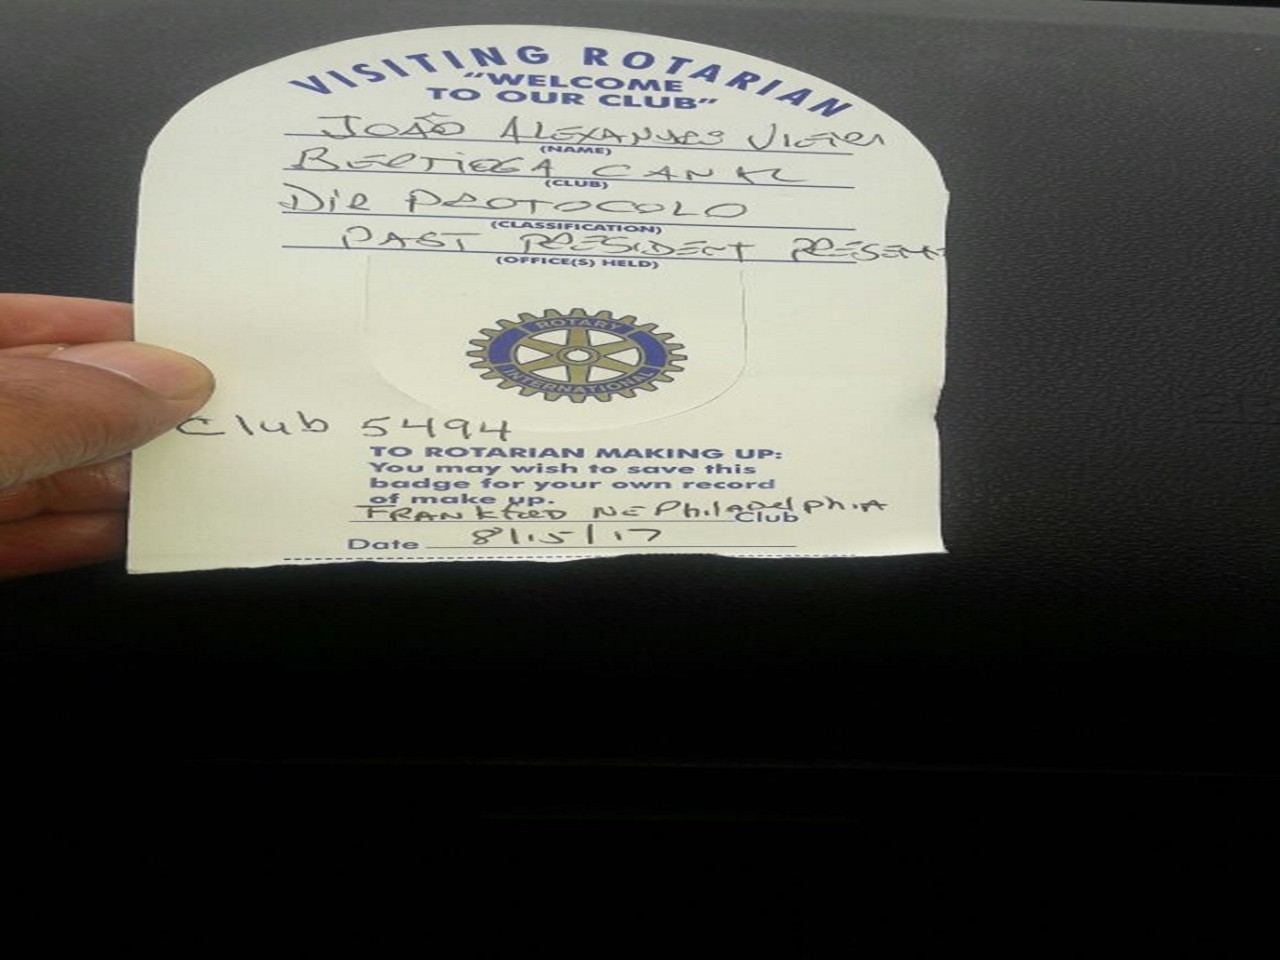 VISITING ROTARIAN
"WELCOME
TO OUR CLUB"
JOÃO ALEXANDRE VIEIRA
(NAME)
BERTIOGA CANAL
(CLUB)
DIR PROTOCOLO
(CLASSIFICATION)
PAST PRESIDENT
(OFFICE(S) HELD)
ROTARY
INTERNATIONAL
Club 5494
TO ROTARIAN MAKING UP:
You may wish to save this
badge for your own record
of make up.
FRANKFORD NE PhilADelphiA
Club
Date 8/15/17